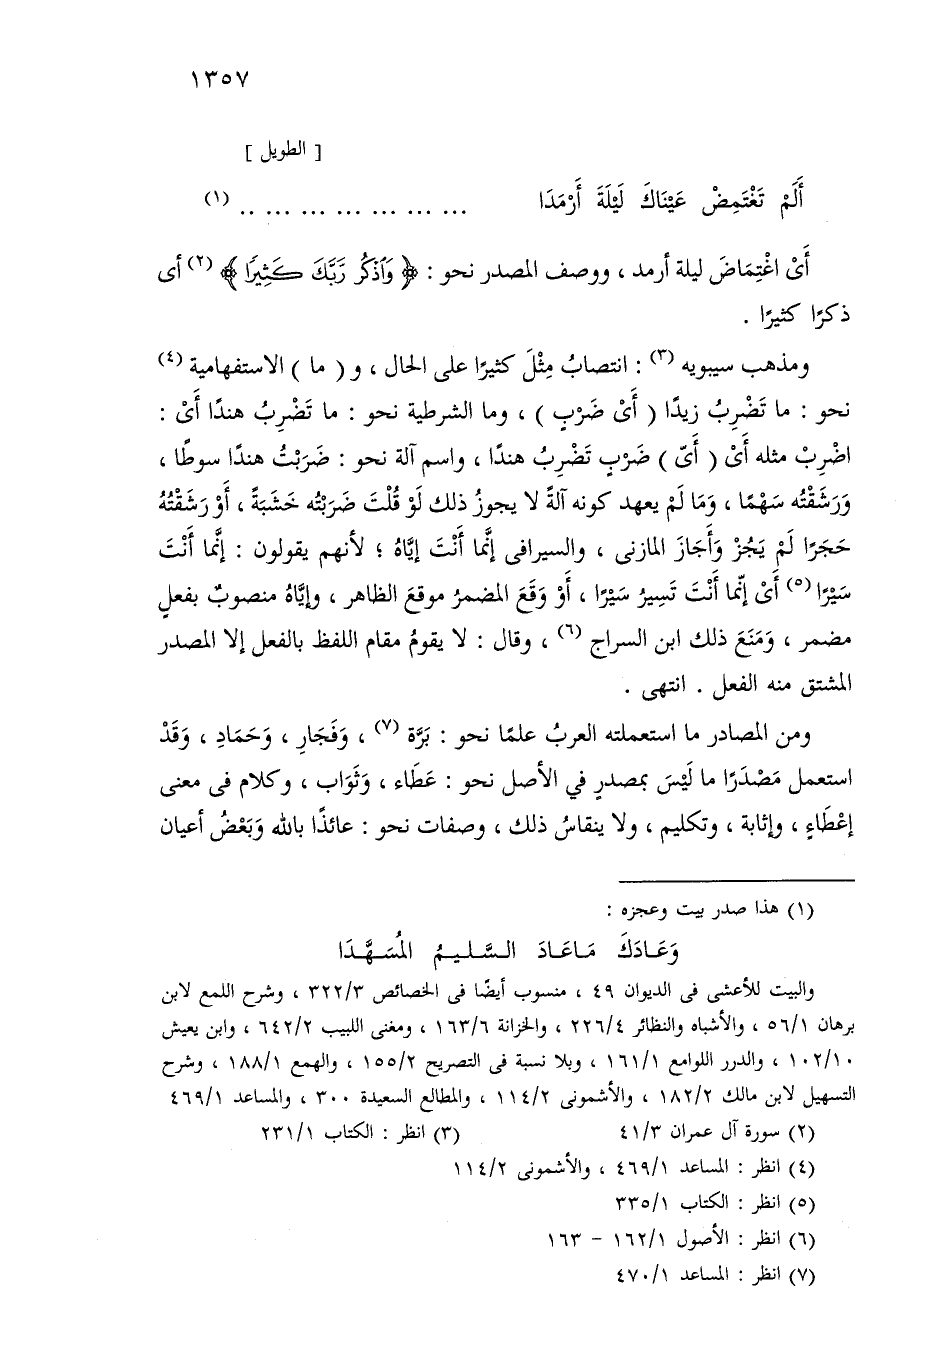 ١٣٥٧
[ الطويل ]
أَلَمْ تَغْتَمِضْ عَيْنَاكَ لَيْلَةَ أَرْمَدَا ... ... ... ... ... ... .. (١)
أَىْ اغْتِمَاضَ ليلة أرمد ، ووصف المصدر نحو : ﴿ وَٱذْكُر رَّبَّكَ كَثِيرًا ﴾ (٢) أى
ذكرًا كثيرًا .
ومذهب سيبويه (٣) : انتصابُ مِثْلَ كثيرًا على الحال ، و ( ما ) الاستفهامية (٤)
نحو : ما تَضْرِبُ زيدًا ( أَىْ ضَرْبٍ ) ، وما الشرطية نحو : ما تَضْرِبُ هندًا أَىْ :
اضْرِبْ مثله أَىْ ( أَىّ ) ضَرْبٍ تَضْرِبُ هندًا ، واسم آلة نحو : ضَرَبْتُ هندًا سوطًا ،
وَرَشَقْتُه سَهْمًا ، وَمَا لَمْ يعهد كونه آلةً لا يجوزُ ذلك لَوْ قُلْتَ ضَرَبْتُه خَشَبَةً ، أَوْ رَشَقْتُهُ
حَجَرًا لَمْ يَجُزْ وَأَجَازَ المازنى ، والسيرافى إِنَّما أَنْتَ إِيَّاهُ ؛ لأنهم يقولون : إِنَّما أَنْتَ
سَيْرًا (٥) أَىْ إِنّما أَنْتَ تَسِيرُ سَيْرًا ، أَوْ وَقَعَ المضمرُ موقعَ الظاهر ، وإِيَّاهُ منصوبٌ بفعلٍ
مضمر ، وَمَنَعَ ذلك ابن السراج (٦) ، وقال : لا يقومُ مقام اللفظ بالفعل إلا المصدر
المشتق منه الفعل . انتهى .
ومن المصادر ما استعملته العربُ علمًا نحو : بَرَّة (٧) ، وَفَجَارِ ، وَحَمَادِ ، وَقَدْ
استعمل مَصْدَرًا ما لَيْسَ بمصدرٍ في الأصل نحو : عَطَاء ، وَثَوَاب ، وكلام فى معنى
إِعْطَاءٍ ، وإثابة ، وتكليم ، ولا ينقاسُ ذلك ، وصفات نحو : عائذًا بالله وَبَعْضُ أعيان
(١) هذا صدر بيت وعجزه :
وَعَادَكَ مَاعَادَ السَّلِيمُ المُسَهَّدَا
والبيت للأعشى فى الديوان ٤٩ ، منسوب أيضًا فى الخصائص ٣٢٢/٣ ، وشرح اللمع لابن
برهان ٥٦/١ ، والأشباه والنظائر ٢٢٦/٤ ، والخزانة ١٦٣/٦ ، ومغنى اللبيب ٦٤٢/٢ ، وابن يعيش
١٠٢/١٠ ، والدرر اللوامع ١٦١/١ ، وبلا نسبة فى التصريح ١٥٥/٢ ، والهمع ١٨٨/١ ، وشرح
التسهيل لابن مالك ١٨٢/٢ ، والأشمونى ١١٤/٢ ، والمطالع السعيدة ٣٠٠ ، والمساعد ٤٦٩/١
(٢) سورة آل عمران ٤١/٣ (٣) انظر : الكتاب ٢٣١/١
(٤) انظر : المساعد ٤٦٩/١ ، والأشمونى ١١٤/٢
(٥) انظر : الكتاب ٣٣٥/١
(٦) انظر : الأصول ١٦٢/١ – ١٦٣
(٧) انظر : المساعد ٤٧٠/١